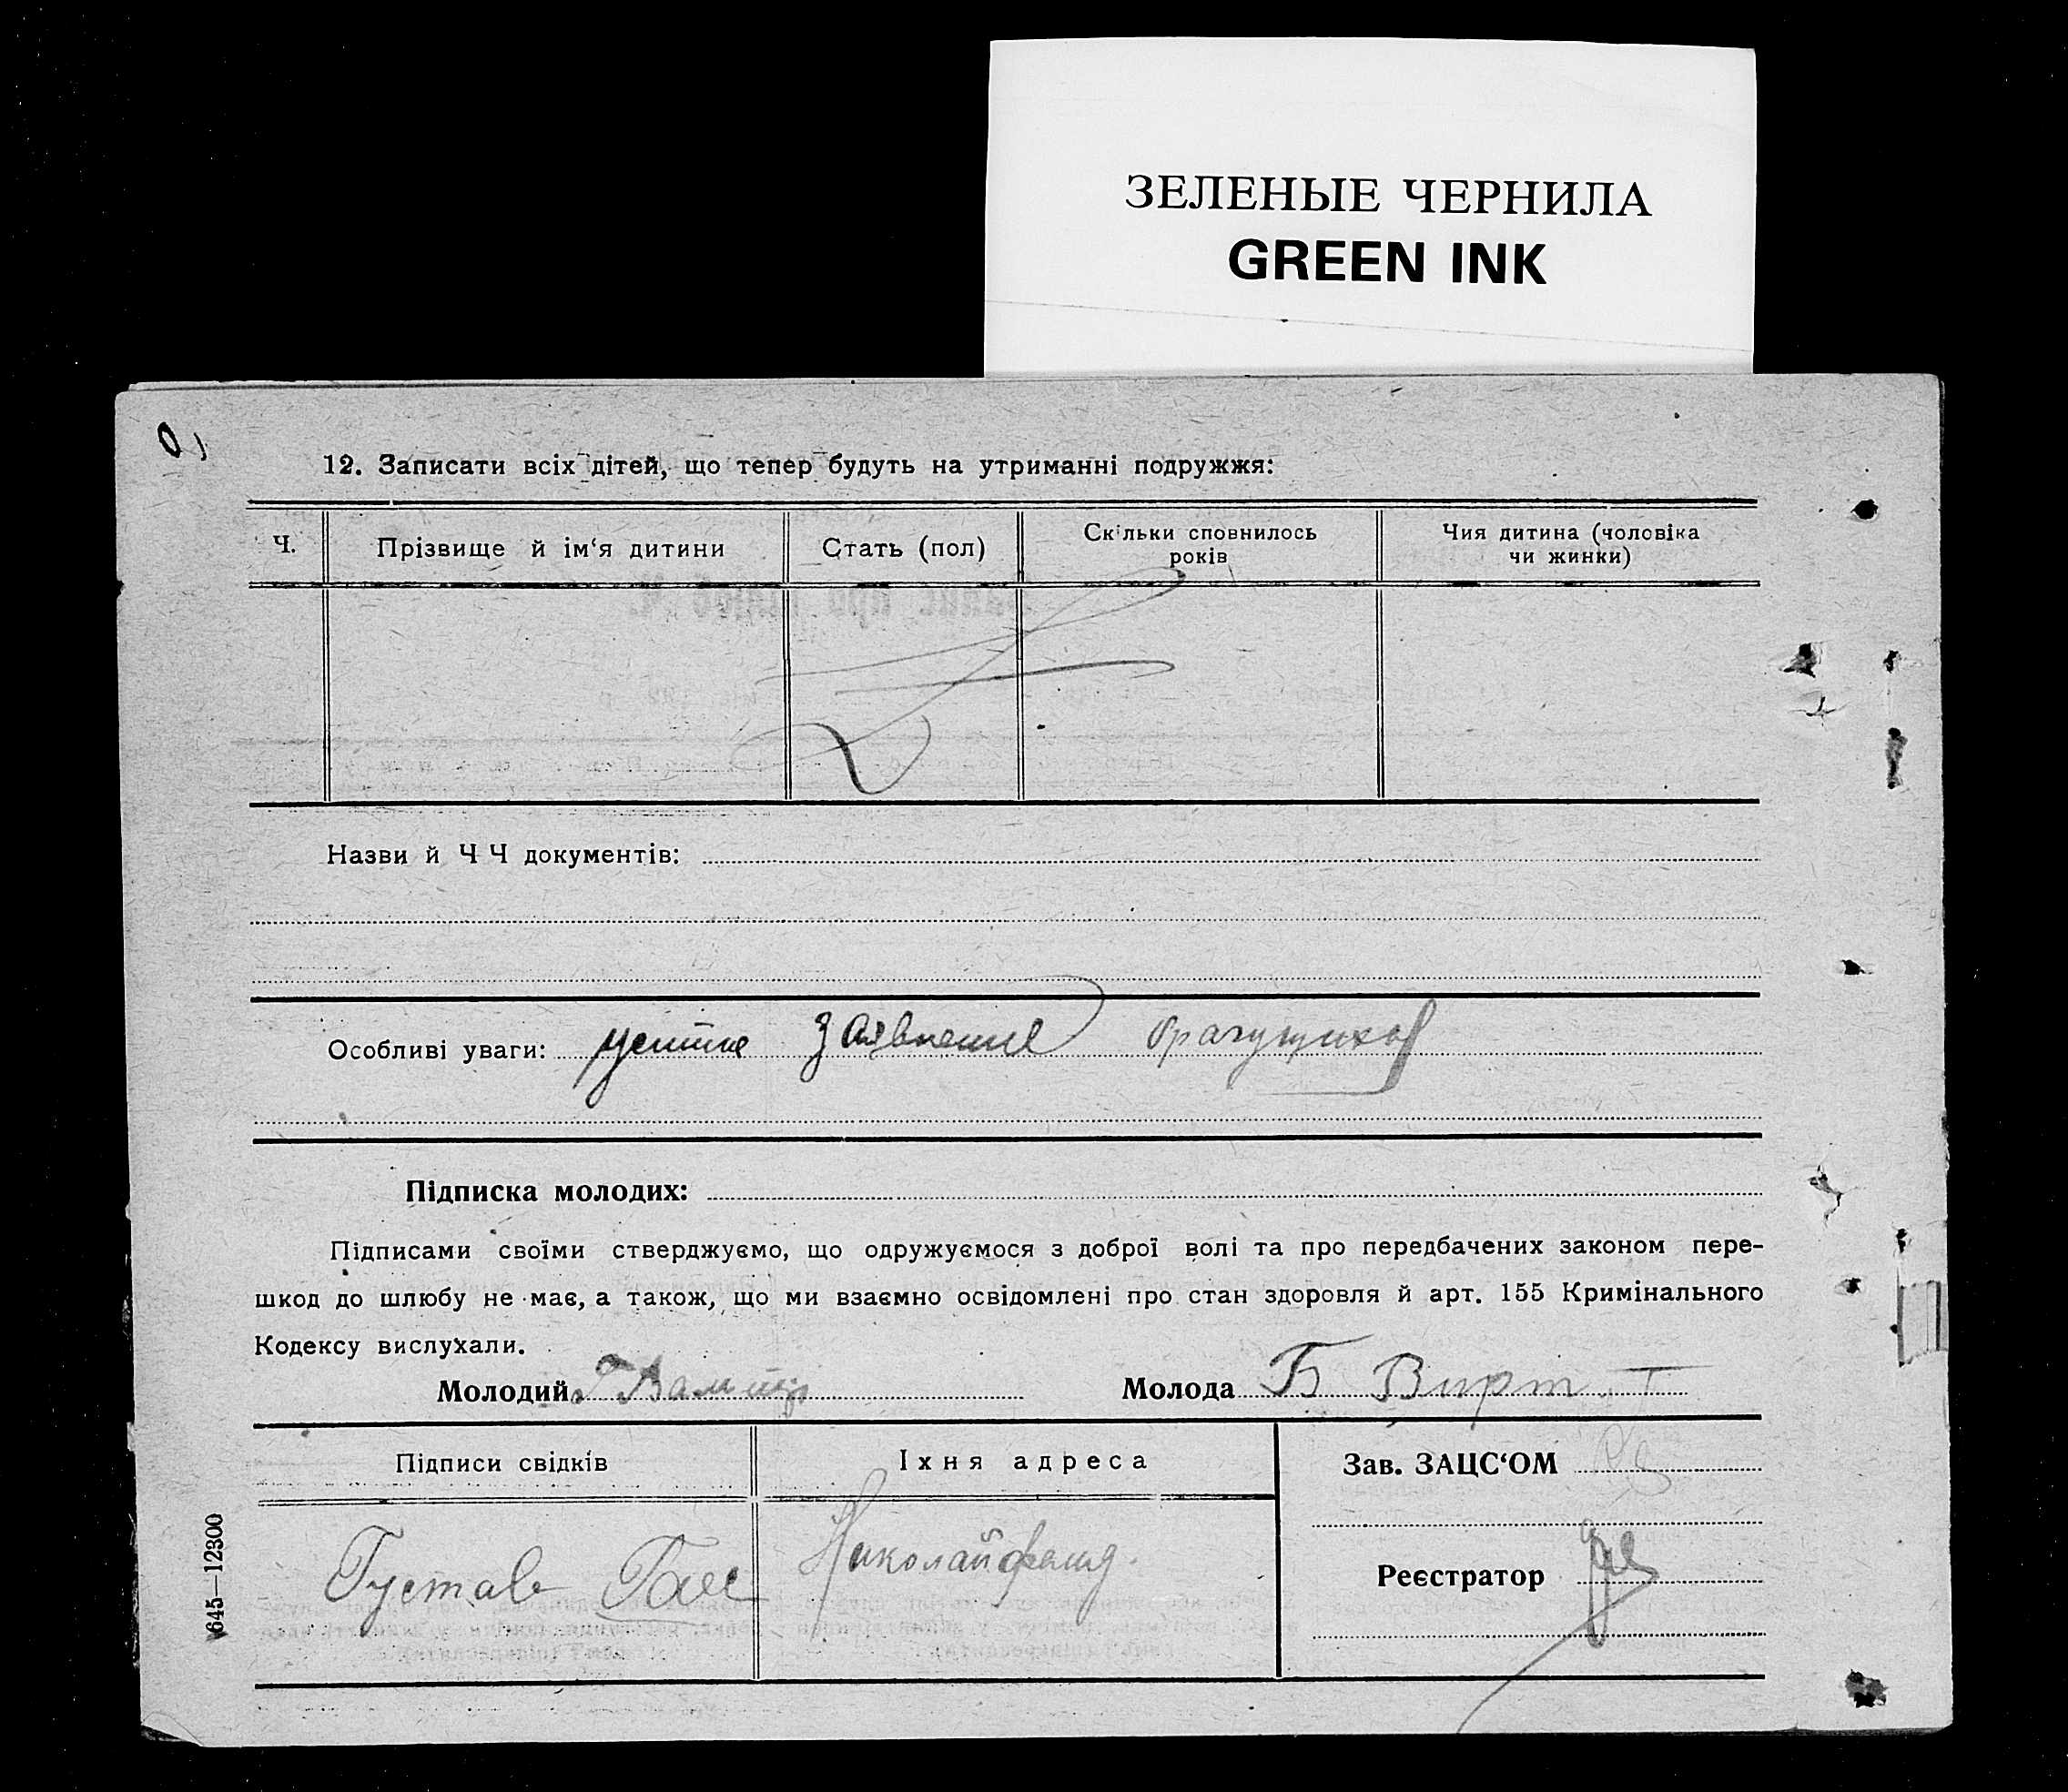 ЗЕЛЕНЫЕ ЧЕРНИЛА
GREEN INK
12. Записати всіх дітей, що тепер будуть на утриманні подружжя:
Ч.
Прізвище й ім‘я дитини
Стать (пол)
Скільки сповнилось
років
Чия дитина (чоловіка
чи жинки)
Назви й Ч Ч документів:
Особливі уваги: устное заявление брачущихся
Підписка молодих:
Підписами своїми стверджуємо, що одружуємося з доброї волі та про передбачених законом пере-
шкод до шлюбу не має, а також, що ми взаємно освідомлені про стан здоровля й арт. 155 Кримінального
Кодексу вислухали.
Молодий
Молода Б Вирт
Підписи свідків
Їхня адреса
Зав. ЗАЦС‘ОМ
Густав Гаес
Николайфельд.
Реєстратор
V645—12300